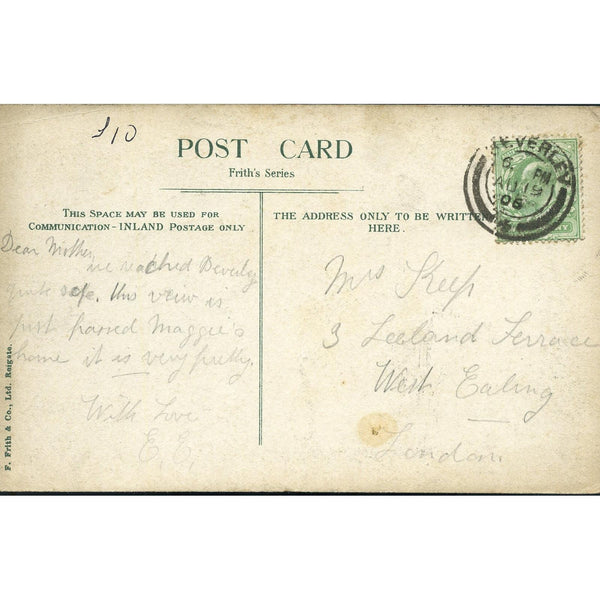 £10
POST CARD
Frith's Series
THIS SPACE MAY BE USED FOR
COMMUNICATION - INLAND POSTAGE ONLY
THE ADDRESS ONLY TO BE WRITTEN
HERE.
BEVERLEY
PM
AU 19
06
Dear Mother,
we reached Beverley
quite safe. this veiw is
just passed Maggie's
home it is very pretty.
With Love
E. E.
Mrs Keep
3 Leeland Terrace
West Ealing
London
F. Frith & Co., Ltd. Reigate.